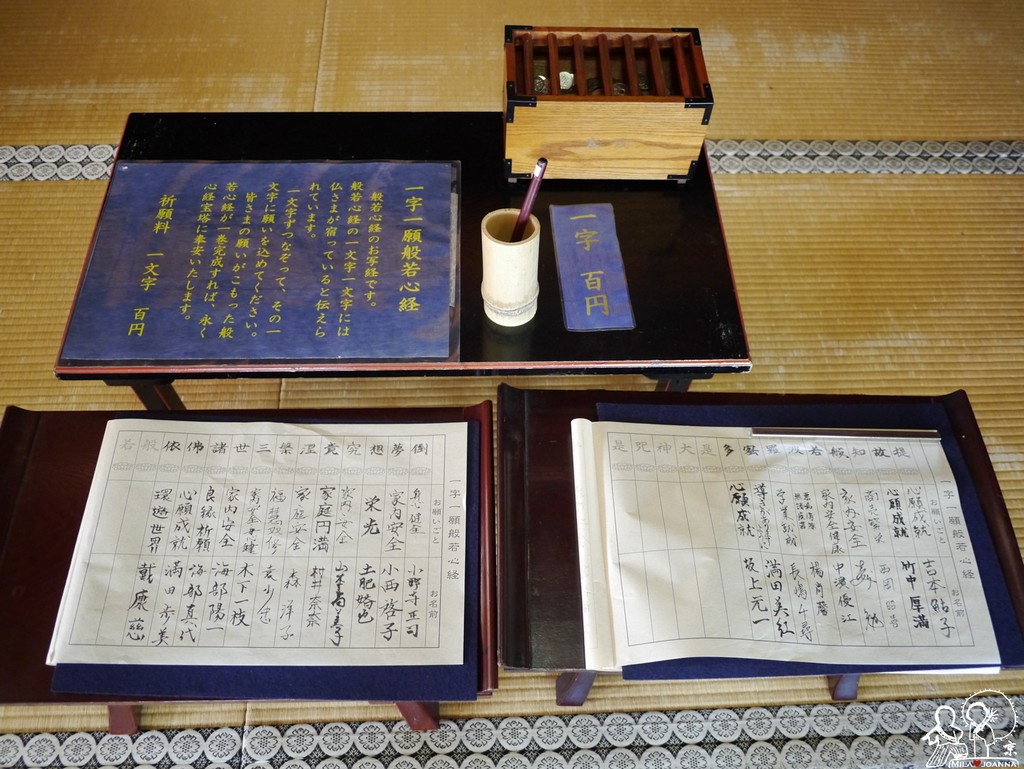 一字一願般若心経
般若心経のお写経です。
般若心経の一文字一文字には
仏さまが宿っていると伝えら
れています。
一文字ずつなぞって、その一
文字に願いを込めてください。
皆さまの願いがこもった般
若心経が一巻完成すれば、永く
心経宝塔に奉安いたします。
祈願料 一文字 百円
一字 百円
一字一願般若心経
お願いごと
お名前
倒 身心健全 小野寺正司
夢 家内安全 小西啓子
想 栄光 土肥
究 家内安全
竟 家庭円満
涅 家庭安全 村井奈奈
槃 森洋子
三
世 家内安全 木下一枝
諸 良縁祈願 海部陽一
佛 心願成就 海部真代
依 心願成就 満田歩美
般 環遊世界 戴康慈
若
一字一願般若心経
お願いごと
お名前
提 心願成就 吉本鮎子
故 心願成就 竹中厚満
知 西岡
般 家内安全
若 家内安全健康 中濱優江
波
羅 学業 長嶋千尋
蜜 満田美紅
多 心願成就 坂上元一
是
大
神
咒
是
京
MILA JOANNA